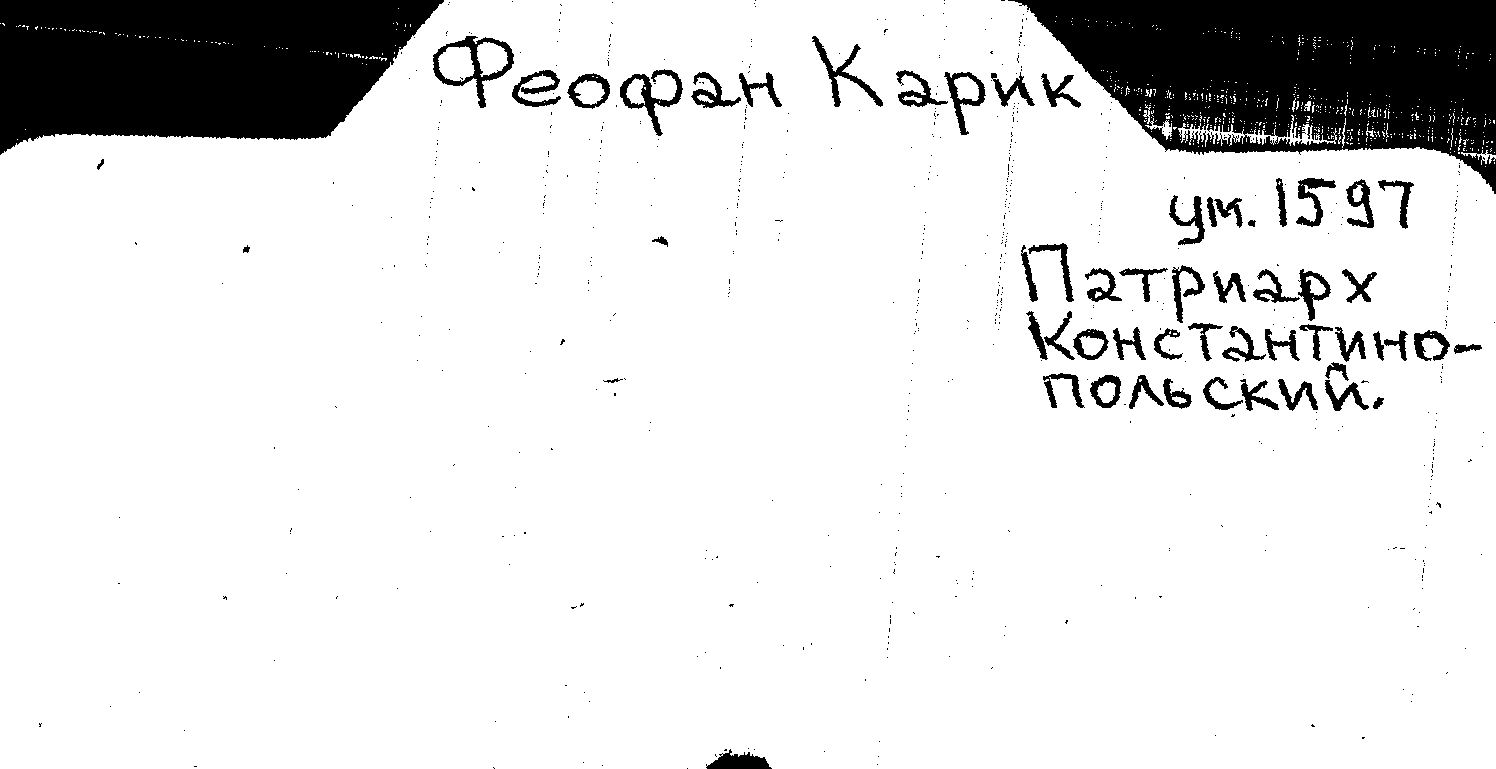 Феофан Карик
ум. 1597
Патриарх
Константино-
польский.